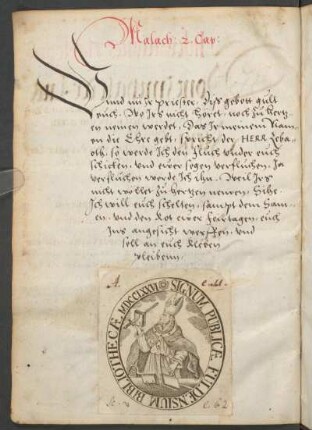 Malach: 2. Cap:
Vnnd nun ir Priester, dis gebott gillt
euch. Wo Irs nicht höret, noch zu hertz-
en nemen werdet, Das Ir meinem Nam-
en die Ehre gebt, spricht der HERR Zeba-
oth, so werde Ich den fluch vnder euch
schicken, vnd ewer segen verfluchen, Ja
verfluchen werde Ich ihn, Weil Irs
nicht wollet zu hertzen nemen, Sihe
Ich will euch schelten, sampt dem Sam-
en, vnd den Kot ewer feirtagen, euch
Ins angesicht werffen, vnd
soll an euch kleben
bleibenn.
SIGNUM PUBLICÆ FULDENSIUM BIBLIOTHECÆ MDCCLXXVI